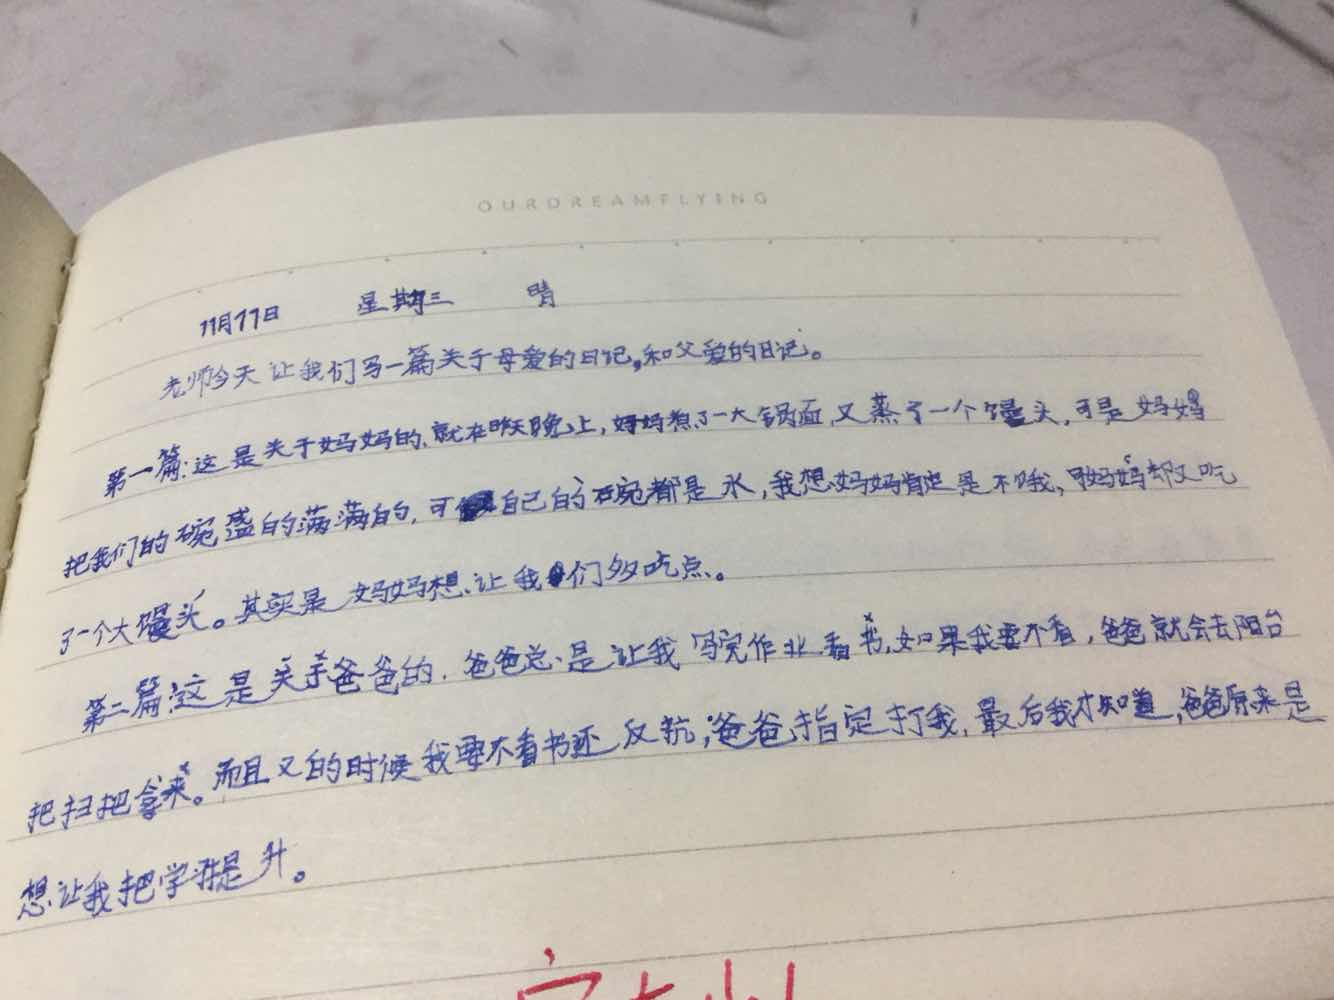 OURDREAMFLYING
11月11日 星期三 晴
老师今天让我们写一篇关于母爱的日记,和父爱的日记。
第一篇:这是关于妈妈的,就在昨天晚上,妈妈煮了一大锅面,又蒸了一个馒头,可是妈妈
把我们的碗盛的满满的,可自己的碗都是水,我想妈妈肯定是不饿,可妈妈却又吃
了一个大馒头。其实是妈妈想让我们多吃点。
第二篇:这是关于爸爸的,爸爸总是让我写完作业看书,如果我要不看,爸爸就会去阳台
把扫把拿来。而且又的时候我要不看书还反抗,爸爸指定打我,最后我才知道,爸爸原来是
想让我把学习提升。